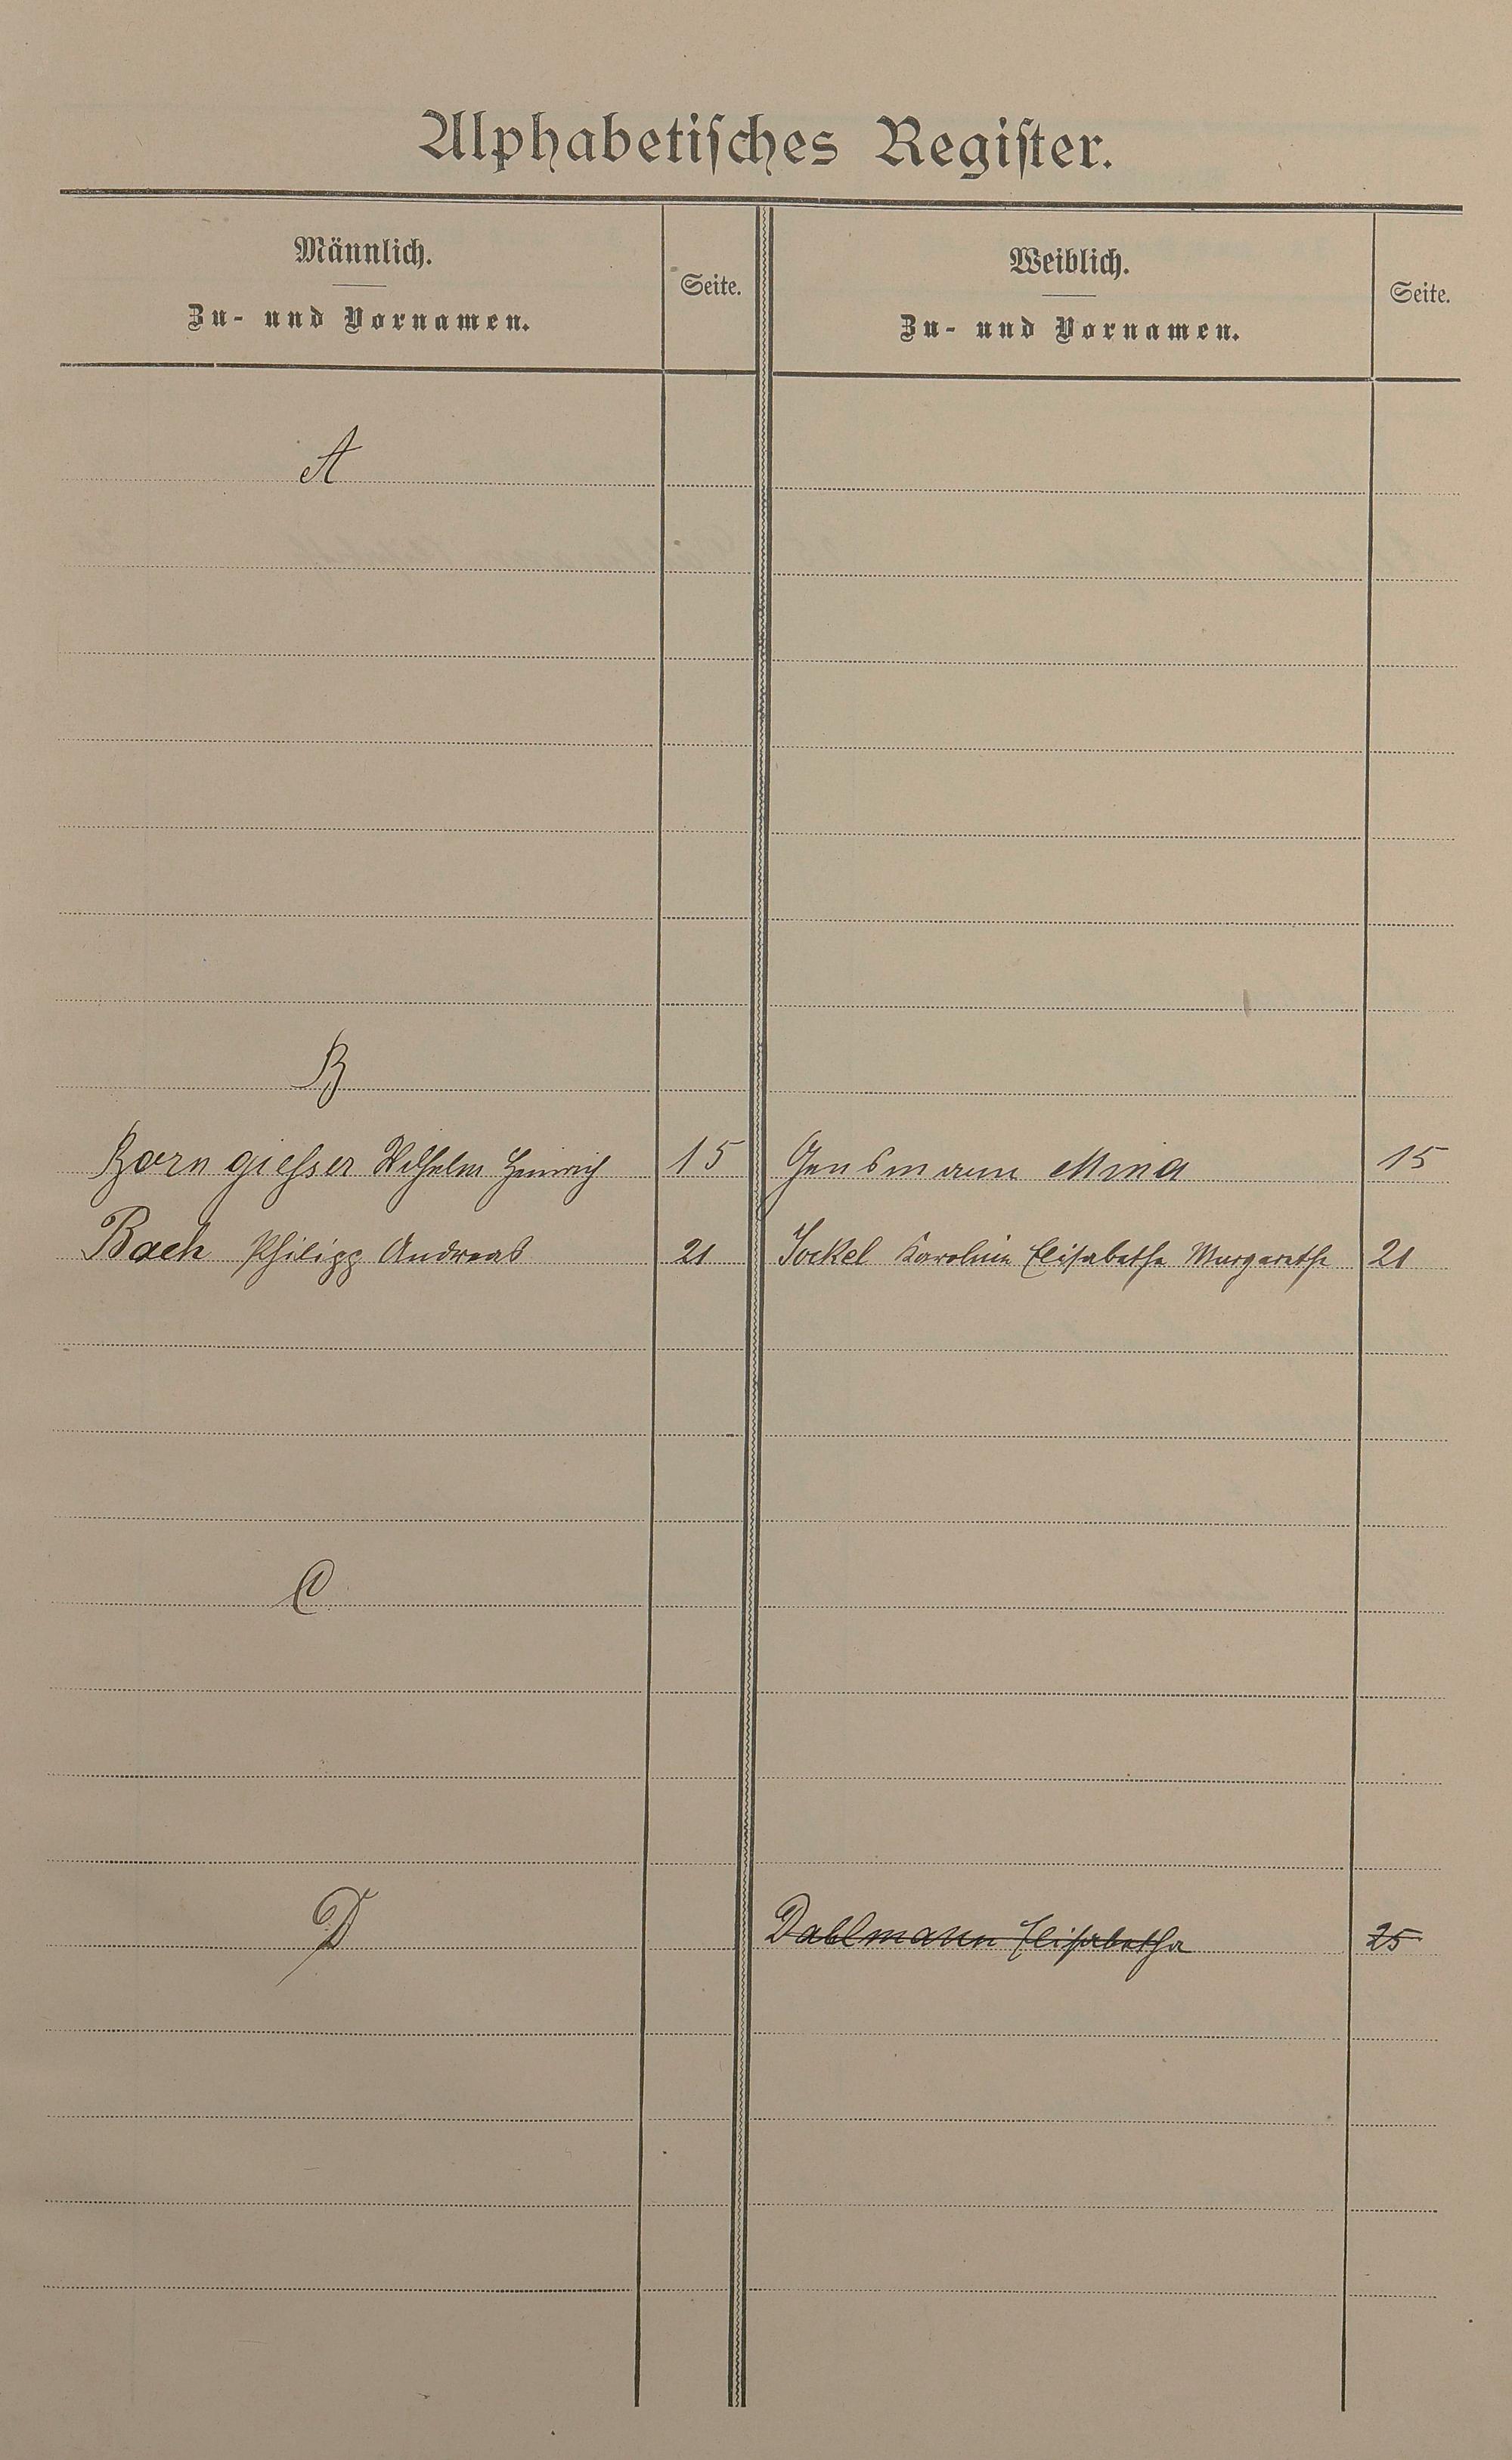 Alphabetisches Register.
Männlich.
Zu- und Vornamen.
Seite.
Weiblich.
Zu- und Vornamen.
Seite.
A
B
Borngiesser Wilhelm Heinrich 15 Gensmann Mina 15
Bach Philipp Andreas 21 Jockel Karoline Elisabetha Margarethe 21
C
D Dahlmann Elisabetha 25